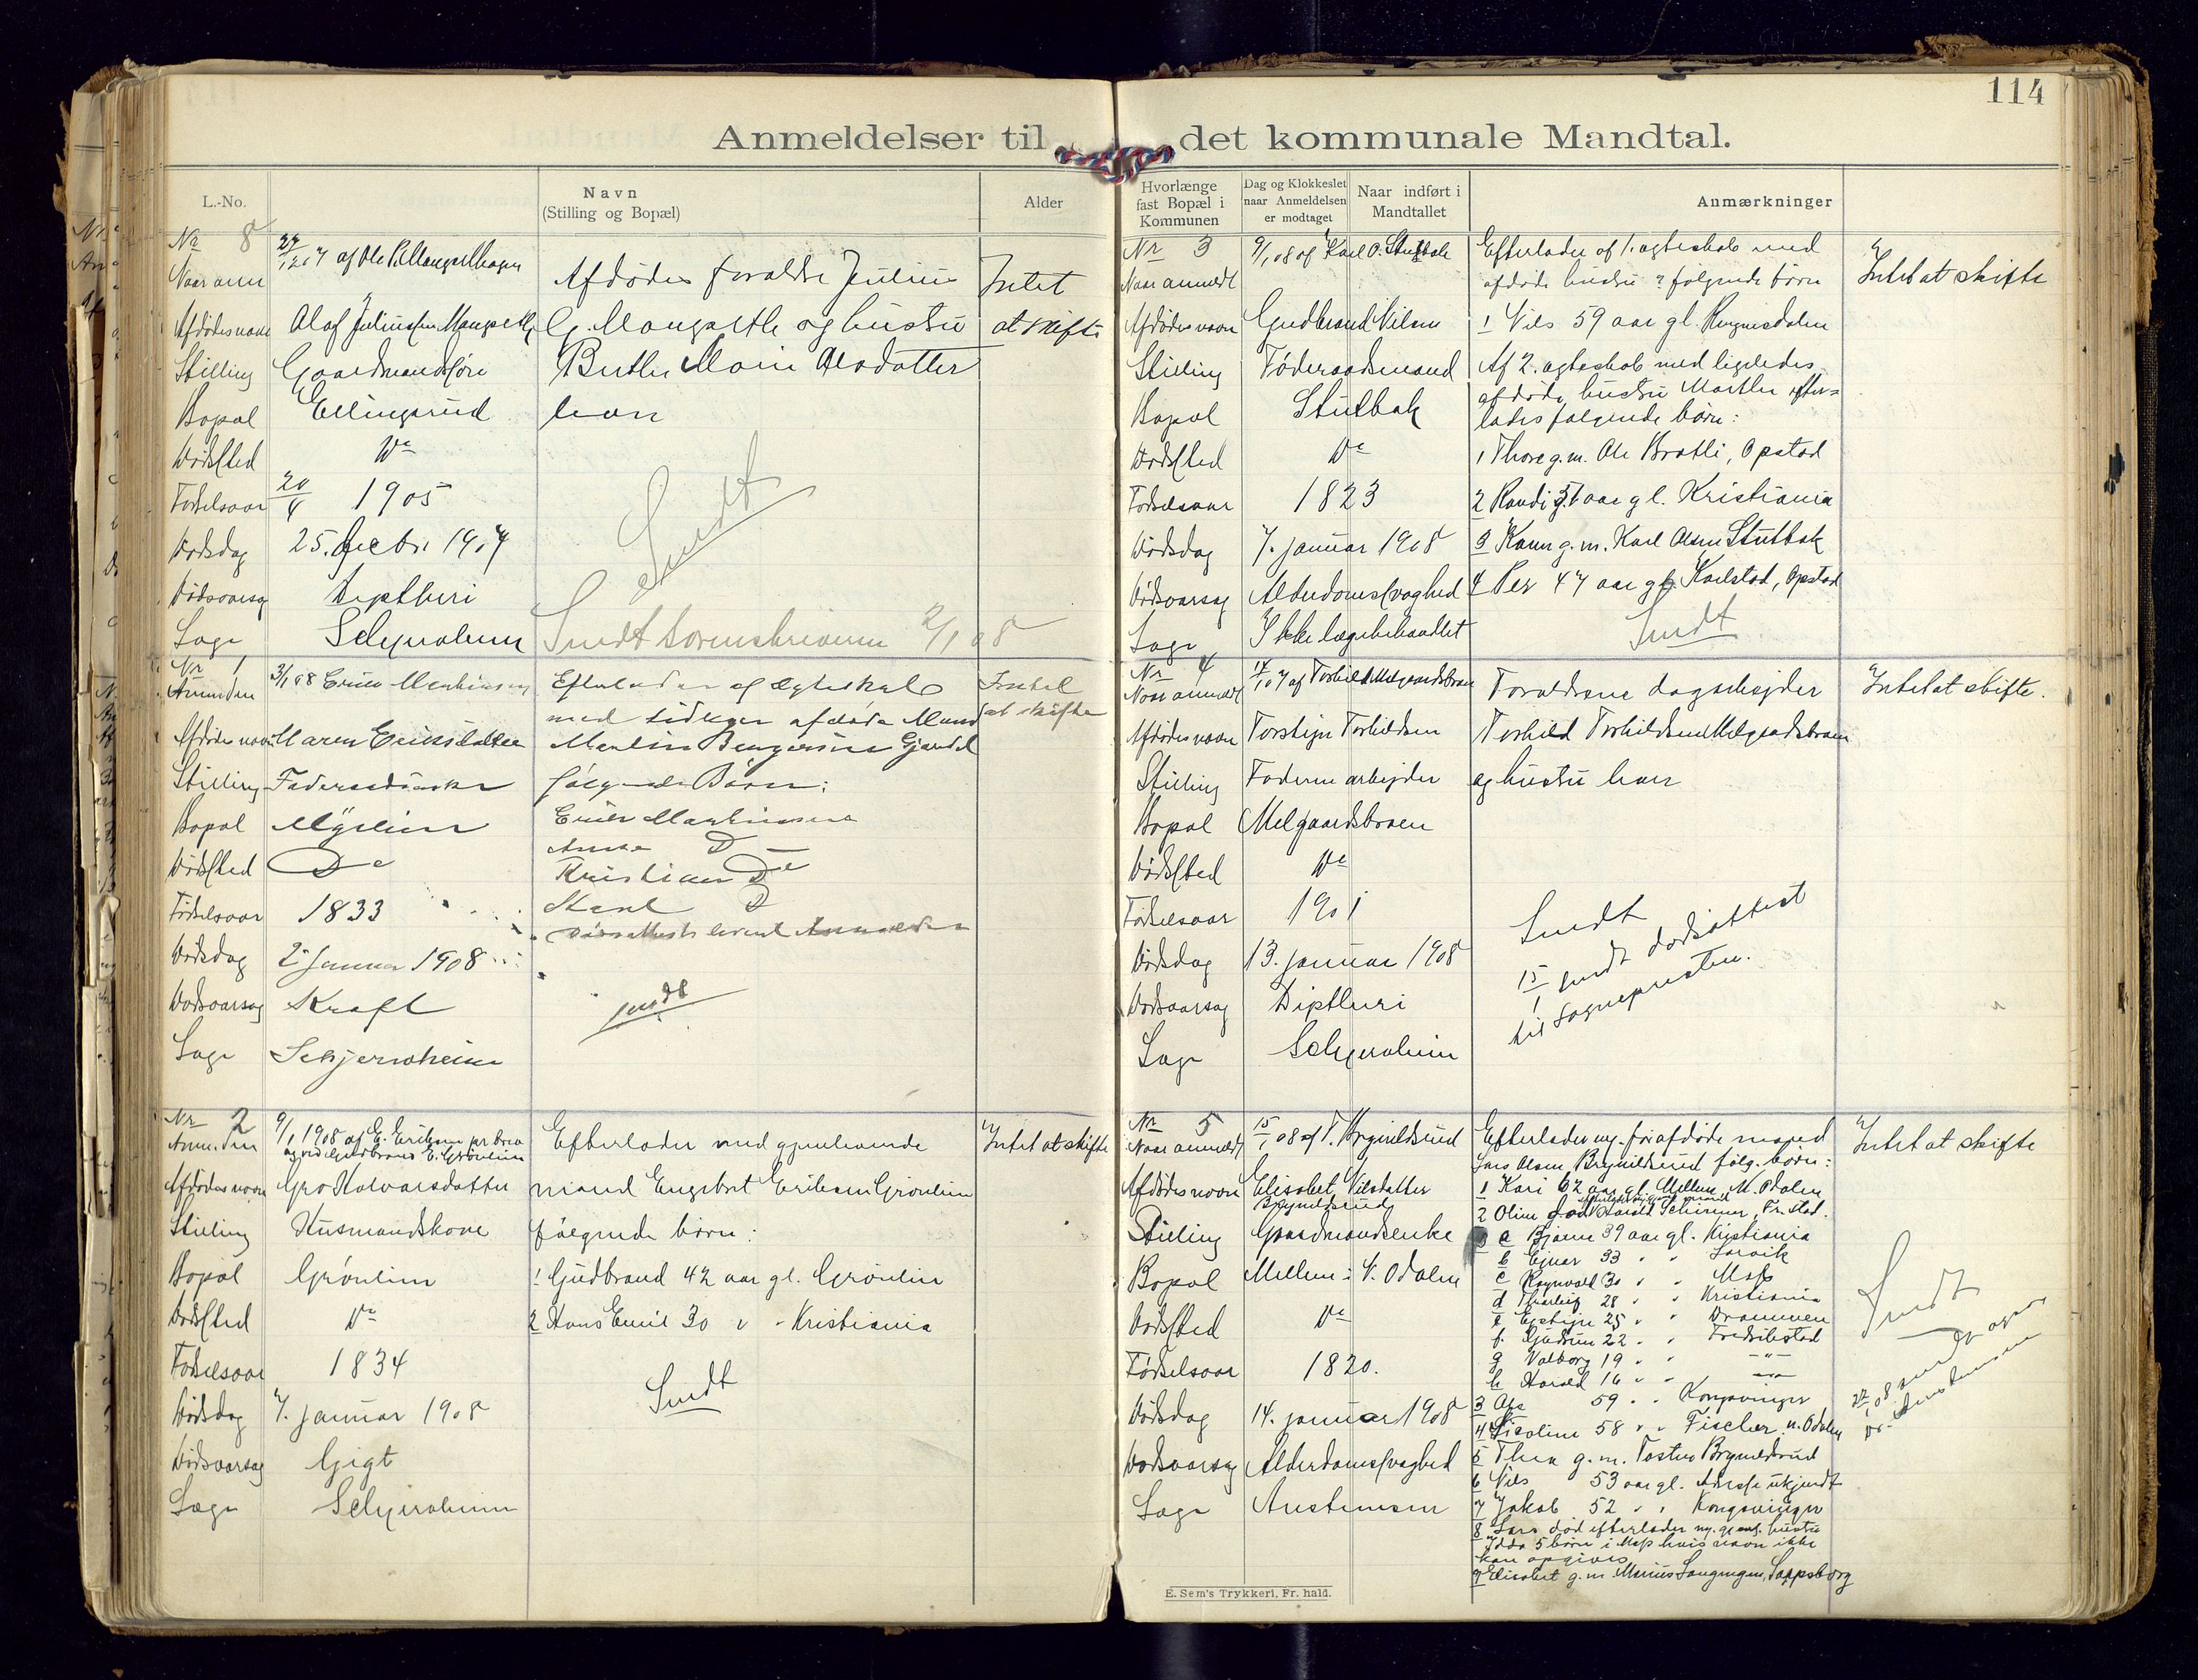 114
Anmeldelser til det kommunale Mandtal.
L.-No.
Navn
(Stilling og Bopæl)
Alder
Hvorlænge
fast Bopæl i
Kommunen
Dag og Klokkeslet
naar Anmeldelsen
er modtaget
Naar indført i
Mandtallet
Anmærkninger
Nr 8
27/12 07 af Ole
Naar anm
Afdødes navn Olaf Juliussen
Stilling Gaardmandssøn
Bopæl Ellingsrud
Dødssted Do
Fødselsaar 20/4 1905
Dødsdag 25. Decbr. 1907
Dødsaarsag Diptheri
Læge Schjerolheim
Afdødes forældre Julius
G. og hustru
Berthe Marie Olsdatter
ham
Sendt
Sendt Sorenskriveren 2/1 08
Intet
at skifte
Nr 1
Anm. den 3/1 08
Afdødes navn Maren Eriksdatter
Stilling
Bopæl
Dødssted Do
Fødselsaar 1833
Dødsdag 2 Januar 1908
Dødsaarsag Kræft
Læge Schjeroheim
Efterlader af Ægteskab
med tidligere afdøde Mand
Martin
følgende Børn:
Martinsen
Anna D
Kristian Do
Karl D
Dødsattest levert Anmelder
sendt
Intet
at skifte
Nr 2
Anm. den 9/1 1908 af E. Eriksen pr brev
og ved Gudbrand E. Grønlien
Afdødes navn Gro Halvorsdatter
Stilling Husmandskone
Bopæl Grønlien
Dødssted Do
Fødselsaar 1834
Dødsdag 7. januar 1908
Dødsaarsag Gigt
Læge Schjerolheim
Efterlader med gjenlevende
mand Engebret Eriksen Grønlien
følgende børn:
1 Gudbrand 42 aar gl. Grønlien
2 Hans Emil 30 " - Kristiania
Sendt
Intet at skifte
Nr 3
Naar anmeldt 9/1 08 af Karl O. Stutbak
Afdødes navn Gudbrand Nilsen
Stilling Føderaadsmand
Bopæl Stutbak
Dødssted Do
Fødselsaar 1823
Dødsdag 7. januar 1908
Dødsaarsag Alderdomssvaghed
Læge Ikke lægebehandlet
Efterlader af 1. ægteskab med
afdøde hustru ? følgende børn
1 Nils 59 aar gl.
Af 2. ægteskab med ligeledes
afdøde hustru Marthe efter-
lades følgende børn:
1 Thore g.m. Ole Bratli, Opstad
2 Randi 51 aar gl. Kristiania
3 Karen g.m. Karl Olsen Stutbak
4 Per 47 aar gl. Karlstad, Opstad
Sendt
Intet at skifte
Nr 4
Naar anmeldt 14/1 07 af Torkild Melgaardsbraaen
Afdødes navn Torstejn Torkildsen
Stilling Faderen arbejder
Bopæl Melgaardsbraaen
Dødssted Do
Fødselsaar 1901
Dødsdag 13. januar 1908
Dødsaarsag Diptheri
Læge Schjerolheim
Forældrene dagarbejder
Torkild Torkildsen Melgaardsbraaen
og hustru ham
Sendt
15/1 sendt dødsattest
til sognepresten.
Intet at skifte.
Nr 5
Naar anmeldt 15/1 08 af T. Brynildsrud
Afdødes navn Elisabet Nilsdatter
Brynildsrud
Stilling Gaardmandsenke
Bopæl Mellem i V. Odalen
Dødssted Do
Fødselsaar 1820.
Dødsdag 14. januar 1908
Dødsaarsag Alderdomssvaghed
Læge Austensen
Efterlader m. forafdøde mand
Lars Olsen Brynildsrud følg. børn:
1 Kari 62 aar gl. Mellem, N. Odalen
2 Oline død Fr. stad.
a Bjarne 39 aar gl. Kristiania
b Ejnar 33 " " Larvik
c Ragnvald 30 " " Moss
d Thorleif 28 " " Kristiania
e Ejstejn 25 " " Drammen
f. Gudrun 22 " " Fredrikstad
g Valborg 19 " " - " -
h Harald 16 " "
3 Ole 59 " " Kongsvinger
4 Nicoline 58 " " Fischer, n. Odalen
5 Thea g.m. Torsten Brynildsrud
6 Nils 53 aar gl. Adresse ukjendt
7 Jakob 52 " " Kongsvinger
8 Lars død efterlader m. gjenl. hustru
Idda 5 børn i Moss hvis navn ikke
kan opgives
9 Elisabet g.m. Marius Langengen, Sarpsborg
Intet at skifte
Sendt
E. Sem's Trykkeri. Fr. hald.